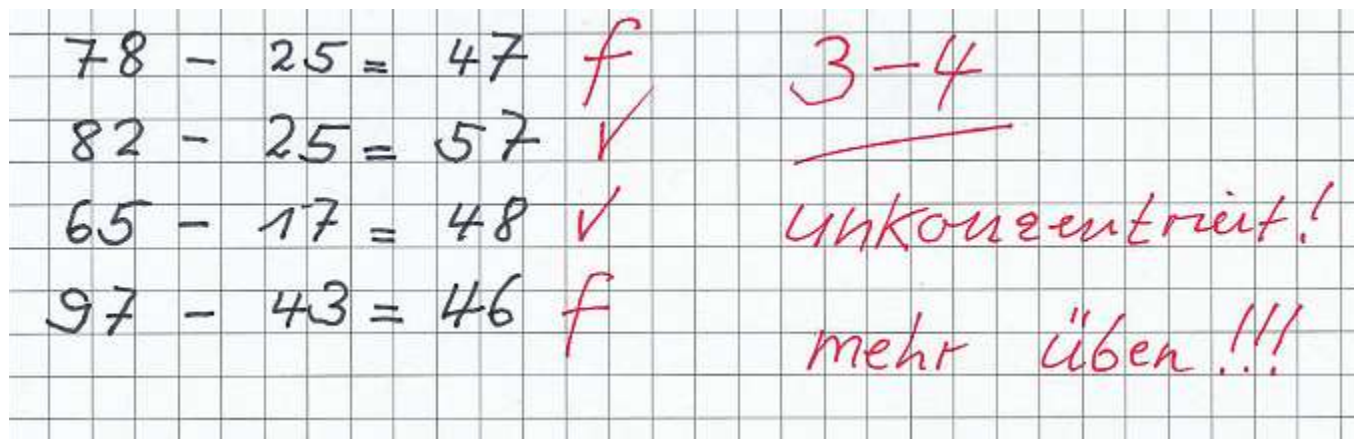 78 - 25 = 47 f
82 - 25 = 57 ✓
65 - 17 = 48 ✓
97 - 43 = 46 f
3-4
unkonzentriert!
mehr üben!!!